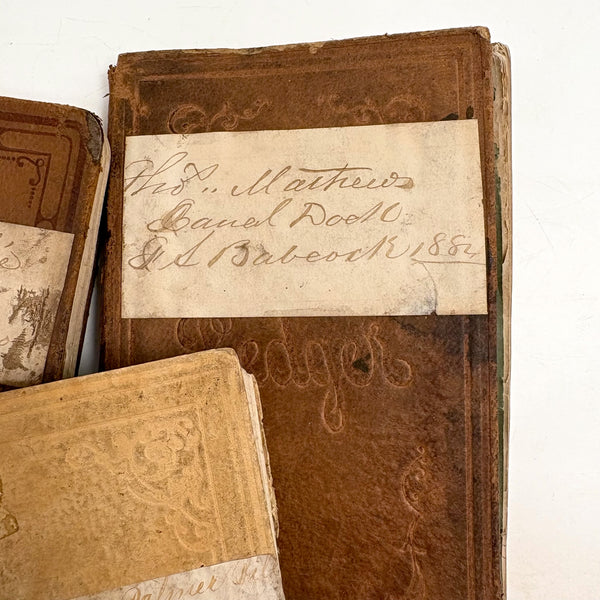 Thos,, Mathews
Canal Dock
F A Babcock 1884
Ledger
Palmer